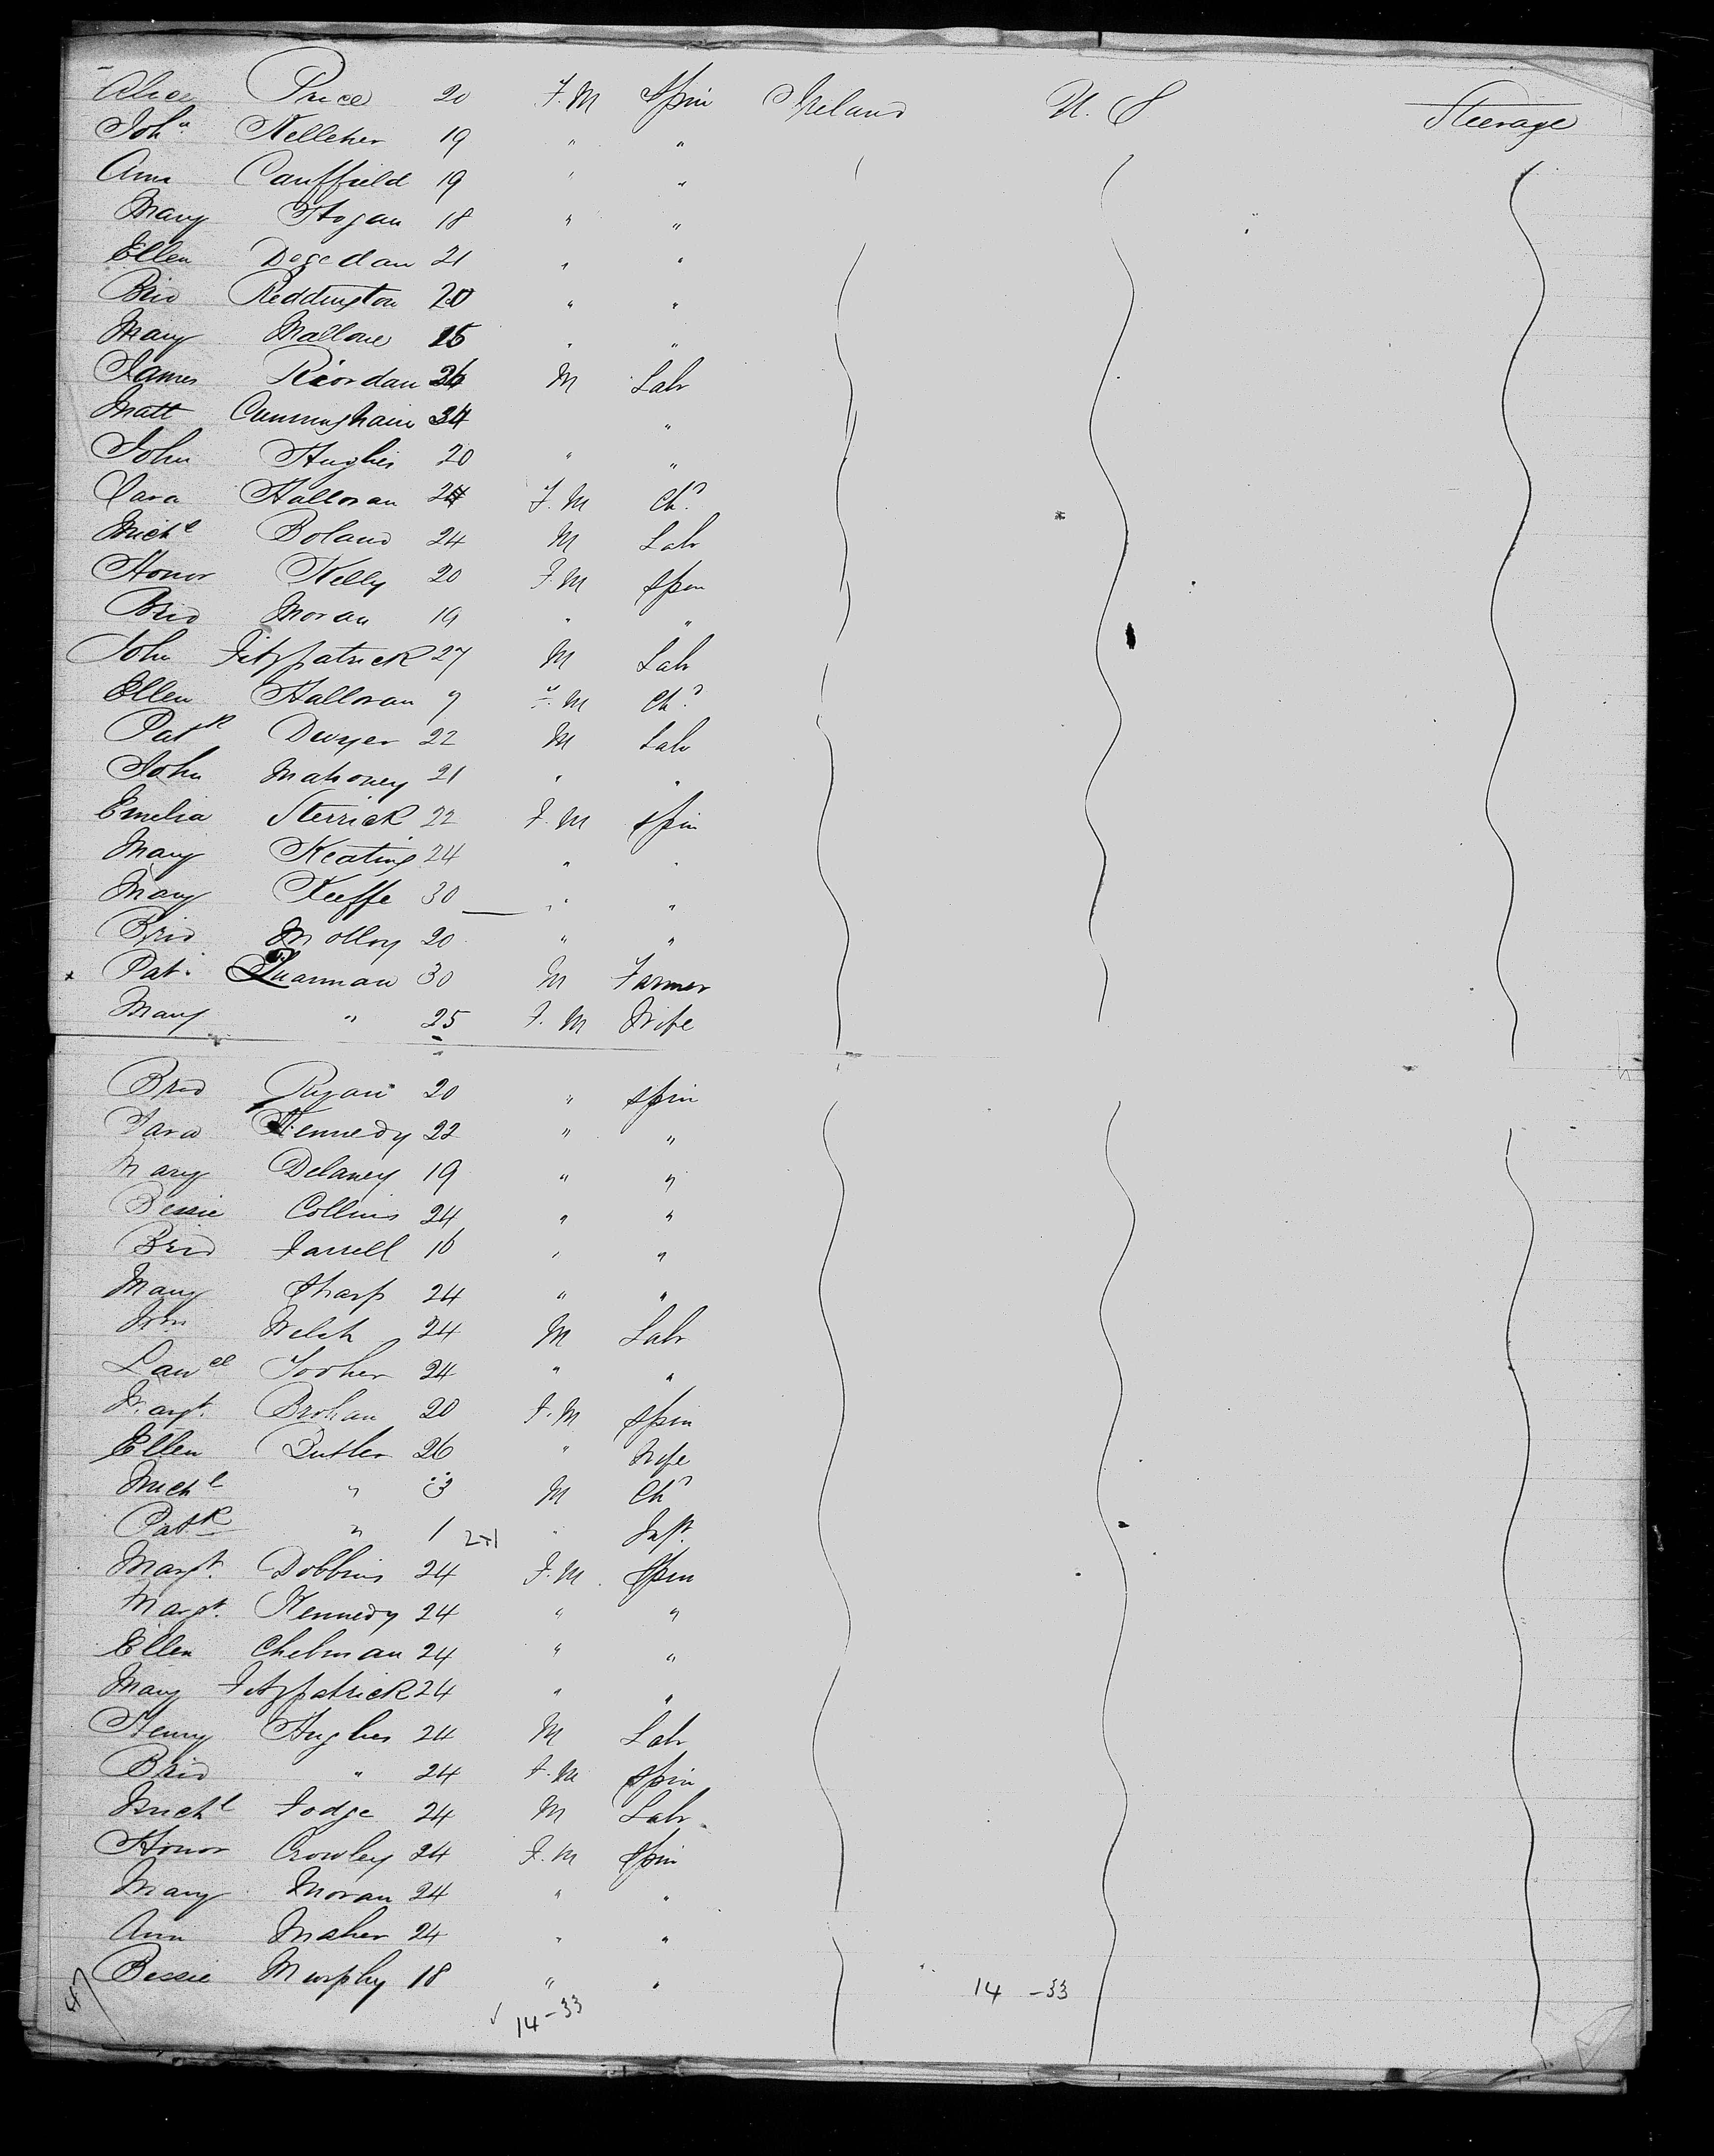 Alice Price 20 F.M Spin Ireland U.S Steerage
Joh.a Kelleher 19 " "
Ann Cauffield 19 " "
Mary Hogan 18 " "
Ellen Degedan 21 " "
Brid Reddington 20 " "
Mary Mallone 15 " "
James Riordan 26 M Labr
Matt Cunningham 34 "
John Hughes 20 " "
Sara Halloran 24 F.M Chd
Michl Boland 24 M Labr
Honor Kelly 20 F.M Spin
Brid Moran 19 " "
John Fitzpatrick 27 M Labr
Ellen Halloran 7 F.M Chd
Patk Dwyer 22 M Labr
John Mahoney 21 " "
Emelia Sterrick 22 F.M Spin
Mary Keating 24 " "
Mary Keeffe 30 " "
Brid Molloy 20 " "
x Pat. 30 M Farmer
Mary " 25 F.M Wife
Brid Ryan 20 " Spin
Sara Kennedy 22 " "
Mary Delaney 19 " "
Bessie Collins 24 " "
Brid Farrell 16 " "
Mary Sharp 24 " "
Wm Welsh 24 M Labr
Lawce Tooher 24 " "
Margt. Brohan 20 F.M Spin
Ellen Butler 26 " Wife
Michl " 3 M Chd
Patk " 1 2+1 " Inft.
Margt. Dobbins 24 F.M. Spin
Margt. Kennedy 24 " "
Ellen Chelman 24 " "
Mary Fitzpatrick 24 " "
Henry Hughes 24 M Labr
Brid " 24 F.M Spin
Michl Fodge 24 M Labr
Honor Crowley 24 F.M Spin
Mary Moran 24 " "
Ann Maher 24 " "
Bessie Murphy 18 " "
47 14-33 14-33